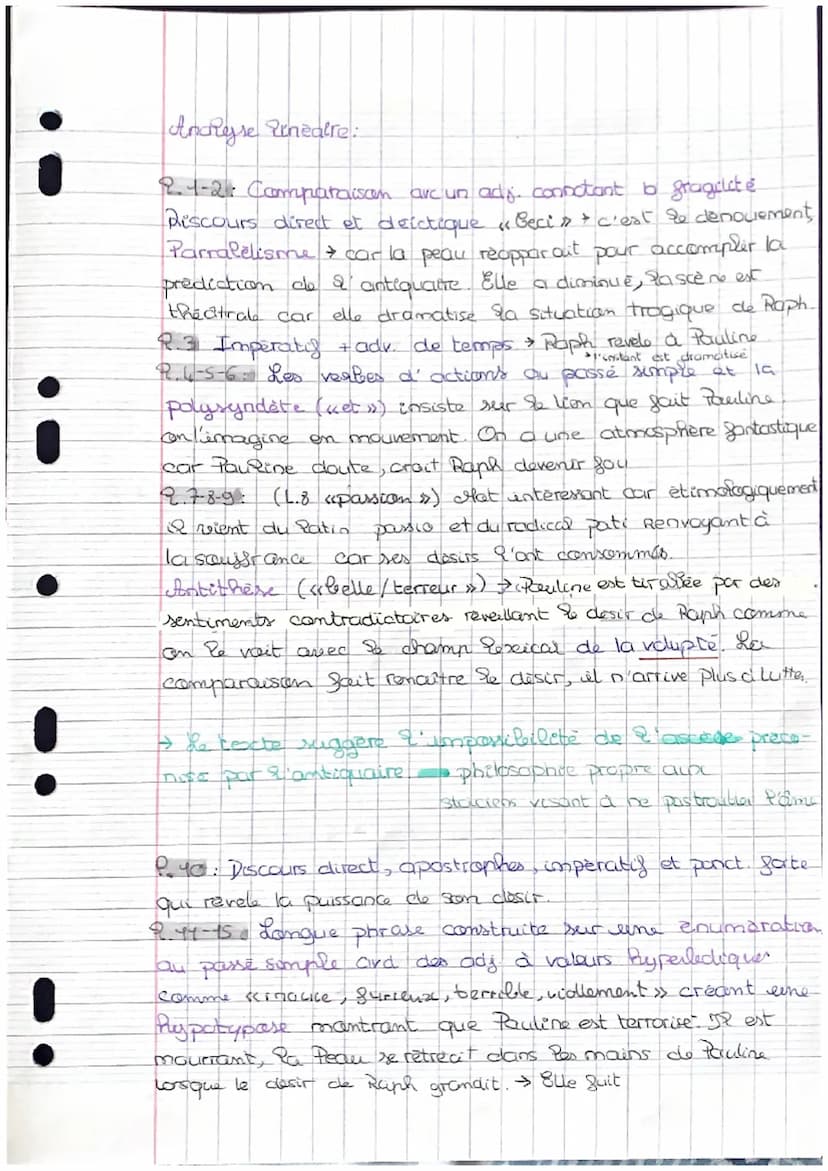 Analyse linéaire:
l.1-2: Comparaison avc un adj. connotant la fragilité
Discours direct et deictique « Ceci » → c'est le dénouement
Parralélisme → car la peau réapparait pour accomplir la
prédiction de l'antiquaire. Elle a diminué, la scène est
théâtrale car elle dramatise la situation tragique de Raph.
l.3 Impératif + adv. de temps → Raph revele à Pauline
→ l'instant est dramatisé
l.4-5-6: Les verbes d'actions au passé simple et la
polysyndète (« et ») insiste sur le lien que fait Pauline,
on l'imagine en mouvement. On a une atmosphère fantastique
car Pauline doute, croit Raph devenir fou
l.7-8-9: (L.8 « passion ») Mot interessant car étimologiquement
il vient du latin passio et du radical pati renvoyant à
la souffrance car ses désirs l'ont consommés.
Antithèse (« belle/terreur ») → Pauline est tiraillée par des
sentiments contradictoires reveillant le desir de Raph comme
on le voit avec le champ lexical de la volupté. La
comparaison fait renaître le désir, il n'arrive plus à lutter.
→ Le texte suggère l'impossibilité de l'ascese préco-
nisé par l'antiquaire. philosophie propre aux
stoïciens visant à ne pas troubler l'âme
l.10: Discours direct, apostrophes, impératif et ponct. forte
qui révèle la puissance de son désir.
l.11-15: Longue phrase construite sur une énumération
au passé simple avc des adj à valeurs hyperbolique
comme « , furieux, terrible, violement » créant une
hypotypose montrant que Pauline est terrorisé. Il est
mourrant, la Peau se rétrécit dans les mains de Pauline
lorsque le desir de Raph grandit. → Elle fuit